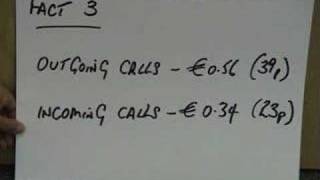 FACT 3
OUTGOING CALLS - €0.56 (39p)
INCOMING CALLS - €0.34 (23p)